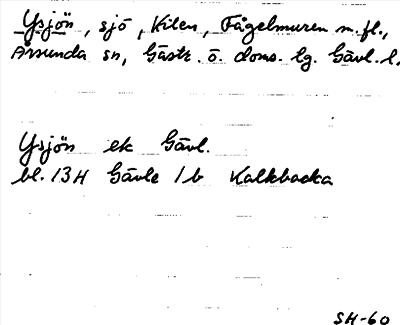 Ysjön, sjö, Kilen, Fågelmuren m.fl.,
Årsunda sn, Gästr. ö. doms. lg. Gävl. l.
Ysjön ek Gävl.
bl. 13H Gävle 1b Kalkbacka
SH-60